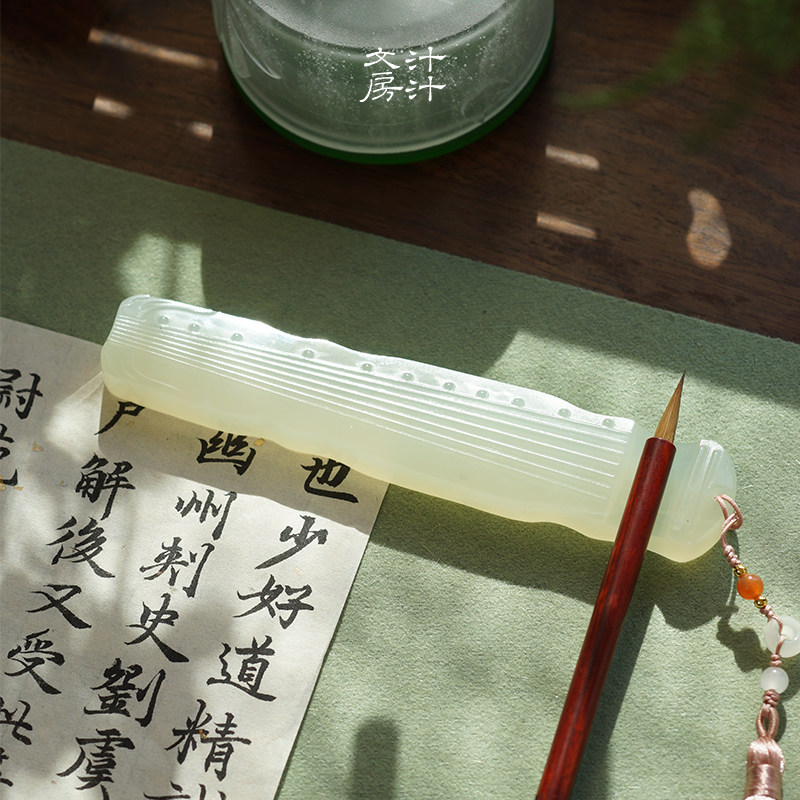 汁汁文房
也少好道精
幽州刺史劉虞
尸解後又受
尉